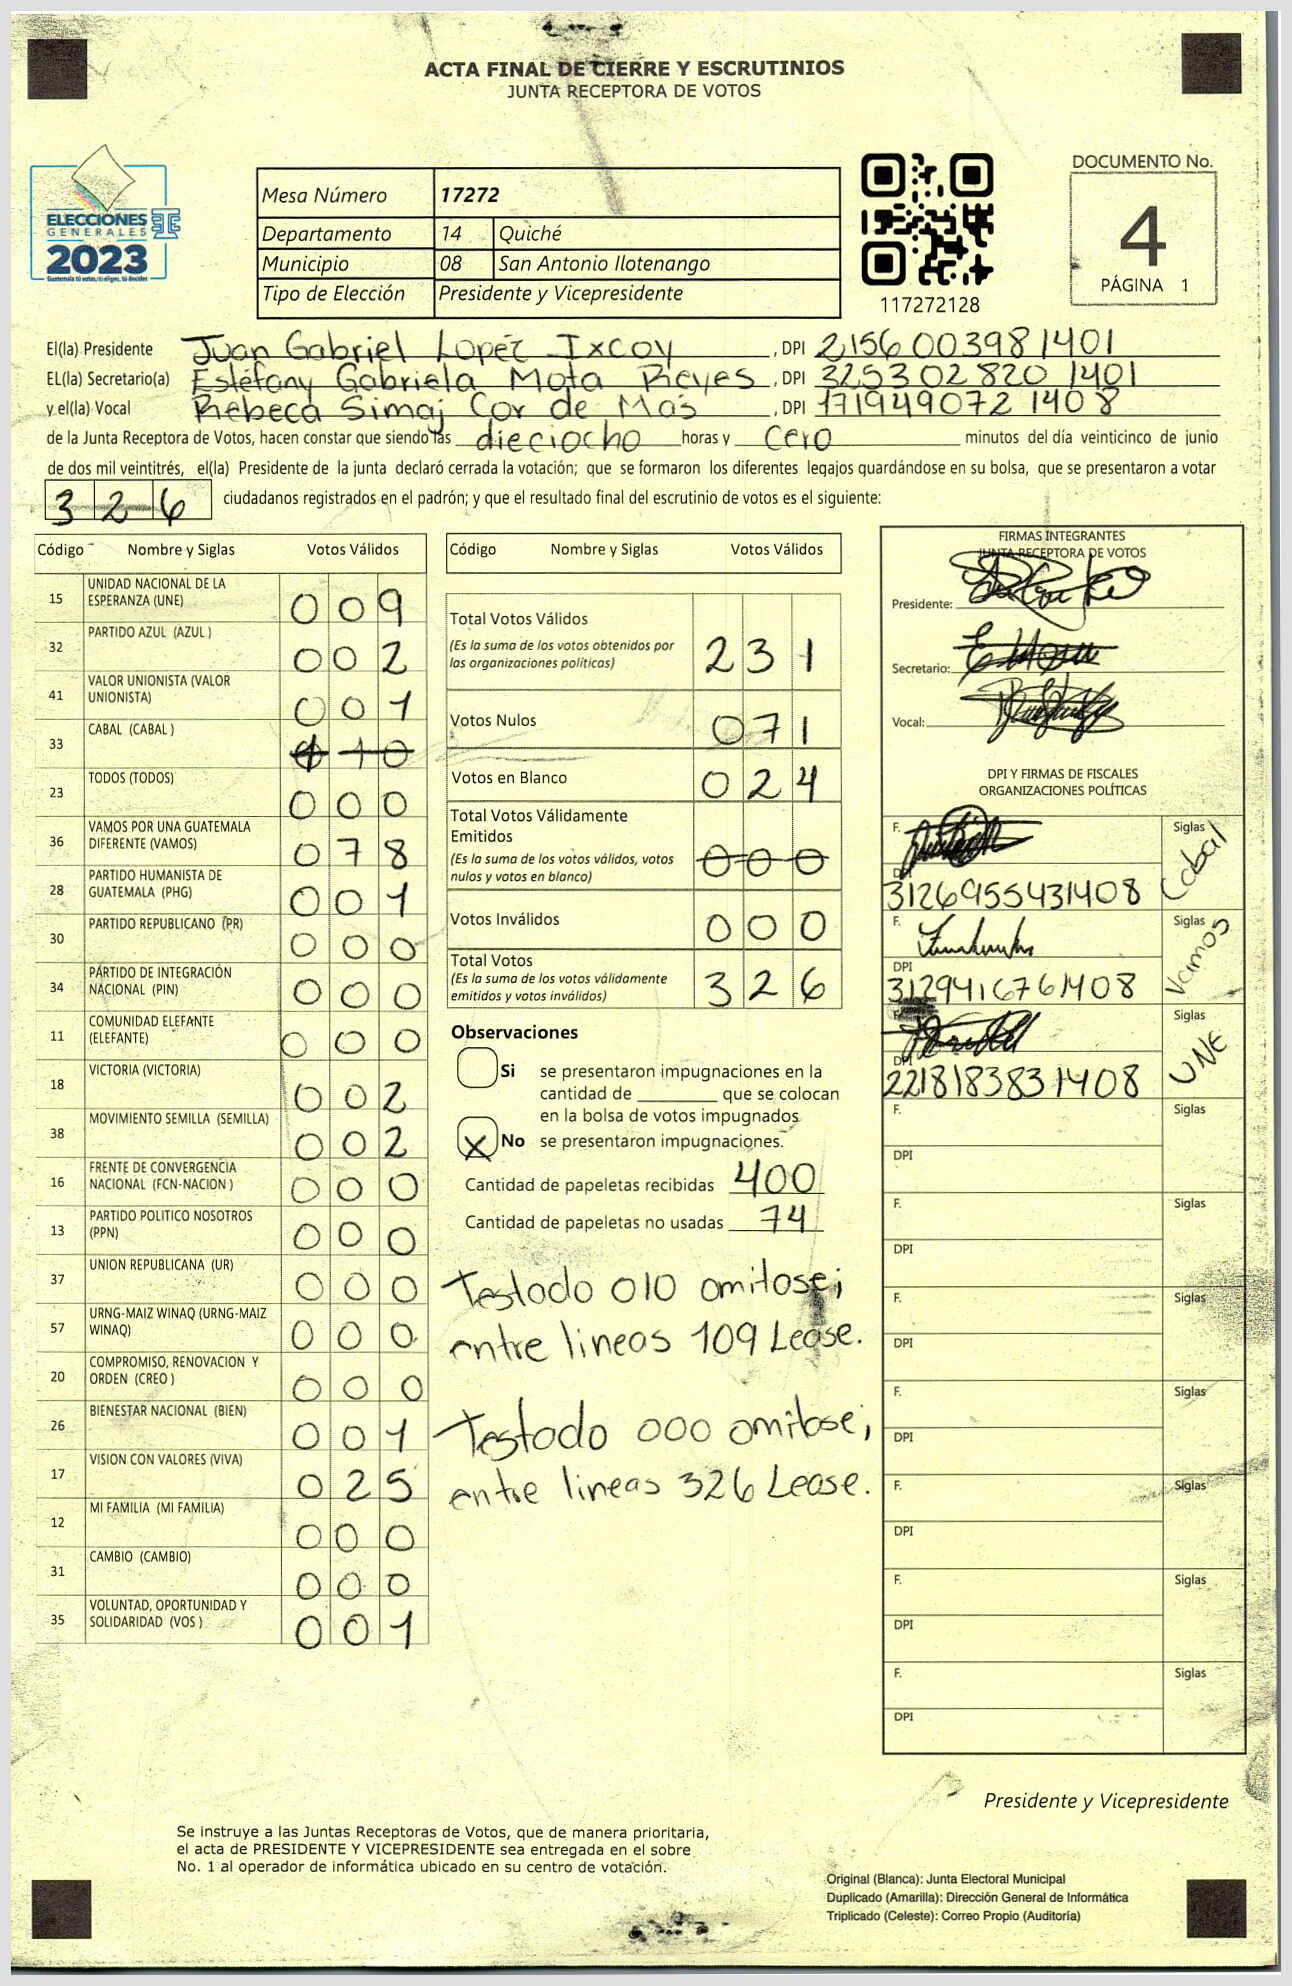 ACTA FINAL DE CIERRE Y ESCRUTINIOS
JUNTA RECEPTORA DE VOTOS
ELECCIONES
GENERALES
2023
Guatemala tú votas, tú eliges, tú decides
Mesa Número 17272
Departamento 14 Quiché
Municipio 08 San Antonio Ilotenango
Tipo de Elección Presidente y Vicepresidente
117272128
DOCUMENTO No.
4
PÁGINA 1
El(la) Presidente Juan Gabriel Lopéz Ixcoy, DPI 2156003981401
EL(la) Secretario(a) Estéfany Gabriela Mota Reyes, DPI 3253028201401
y el(la) Vocal Rebeca Simaj Cor de Mas, DPI 1719490721408
de la Junta Receptora de Votos, hacen constar que siendo las dieciocho horas y cero minutos del día veinticinco de junio
de dos mil veintitrés, el(la) Presidente de la junta declaró cerrada la votación; que se formaron los diferentes legajos quardándose en su bolsa, que se presentaron a votar
326 ciudadanos registrados en el padrón; y que el resultado final del escrutinio de votos es el siguiente:
Código Nombre y Siglas Votos Válidos
15 UNIDAD NACIONAL DE LA ESPERANZA (UNE) 009
32 PARTIDO AZUL (AZUL ) 002
41 VALOR UNIONISTA (VALOR UNIONISTA) 001
33 CABAL (CABAL ) 010
23 TODOS (TODOS) 000
36 VAMOS POR UNA GUATEMALA DIFERENTE (VAMOS) 078
28 PARTIDO HUMANISTA DE GUATEMALA (PHG) 001
30 PARTIDO REPUBLICANO (PR) 000
34 PARTIDO DE INTEGRACIÓN NACIONAL (PIN) 000
11 COMUNIDAD ELEFANTE (ELEFANTE) 000
18 VICTORIA (VICTORIA) 002
38 MOVIMIENTO SEMILLA (SEMILLA) 002
16 FRENTE DE CONVERGENCIA NACIONAL (FCN-NACION ) 000
13 PARTIDO POLITICO NOSOTROS (PPN) 000
37 UNION REPUBLICANA (UR) 000
57 URNG-MAIZ WINAQ (URNG-MAIZ WINAQ) 000
20 COMPROMISO, RENOVACION Y ORDEN (CREO ) 000
26 BIENESTAR NACIONAL (BIEN) 001
17 VISION CON VALORES (VIVA) 025
12 MI FAMILIA (MI FAMILIA) 000
31 CAMBIO (CAMBIO) 000
35 VOLUNTAD, OPORTUNIDAD Y SOLIDARIDAD (VOS ) 001
Código Nombre y Siglas Votos Válidos
Total Votos Válidos 231
(Es la suma de los votos obtenidos por
las organizaciones políticas)
Votos Nulos 071
Votos en Blanco 024
Total Votos Válidamente
Emitidos 000
(Es la suma de los votos válidos, votos
nulos y votos en blanco)
Votos Inválidos 000
Total Votos 326
(Es la suma de los votos válidamente
emitidos y votos inválidos)
Observaciones
Si se presentaron impugnaciones en la
cantidad de ________ que se colocan
en la bolsa de votos impugnados
X No se presentaron impugnaciones.
Cantidad de papeletas recibidas 400
Cantidad de papeletas no usadas 74
Testado 010 omitose;
entre lineas 109 Lease.
Testado 000 omitose;
entre lineas 326 Lease.
FIRMAS INTEGRANTES
JUNTA RECEPTORA DE VOTOS
Presidente:
Secretario:
Vocal:
DPI Y FIRMAS DE FISCALES
ORGANIZACIONES POLÍTICAS
F. Siglas Cabal
DPI 3126955431408
F. Siglas Vamos
DPI 3129416761408
F. Siglas UNE
DPI 2218183831408
F. Siglas
DPI
F. Siglas
DPI
F. Siglas
DPI
F. Siglas
DPI
F. Siglas
DPI
F. Siglas
DPI
F. Siglas
DPI
Presidente y Vicepresidente
Se instruye a las Juntas Receptoras de Votos, que de manera prioritaria,
el acta de PRESIDENTE Y VICEPRESIDENTE sea entregada en el sobre
No. 1 al operador de informática ubicado en su centro de votación.
Original (Blanca): Junta Electoral Municipal
Duplicado (Amarilla): Dirección General de Informática
Triplicado (Celeste): Correo Propio (Auditoría)